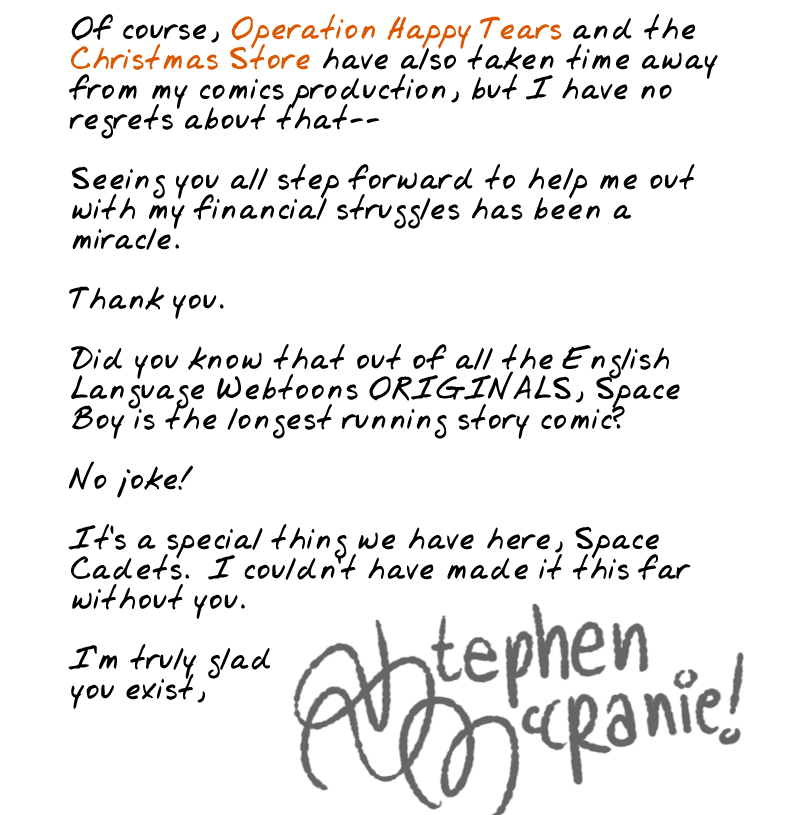 Of course, Operation Happy Tears and the
Christmas Store have also taken time away
from my comics production, but I have no
regrets about that--
Seeing you all step forward to help me out
with my financial struggles has been a
miracle.
Thank you.
Did you know that out of all the English
Language Webtoons ORIGINALS, Space
Boy is the longest running story comic?
No joke!
It's a special thing we have here, Space
Cadets. I couldn't have made it this far
without you.
I'm truly glad
you exist,
Stephen
McCranie!